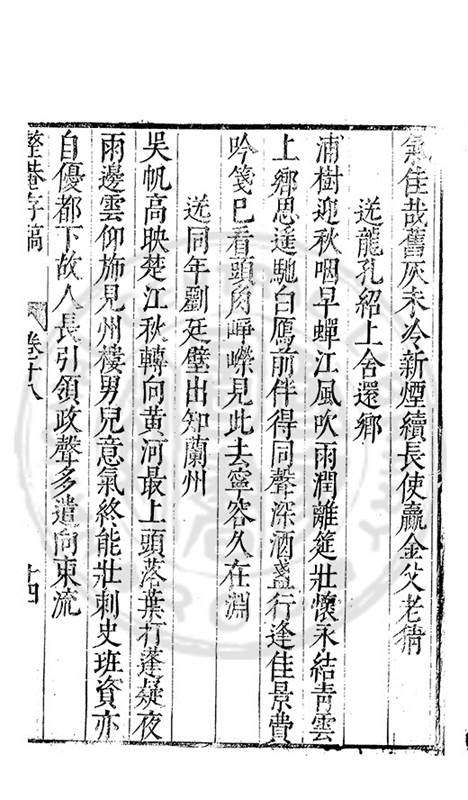 氣佳哉舊灰未冷新煙續長使贏金父老猜
送龍孔紹上舍還鄉
浦樹迎秋咽早蟬江風吹雨潤離筵壯懷永結青雲
上鄉思遙馳白鴈前伴得同聲深酒盞行逢佳景費
吟箋已看頭角崢嶸見此去寧容久在淵
送同年劉廷璧出知蘭州
吳帆高映楚江秋轉向黃河最上頭落葉打蓬疑夜
雨邊雲仰旆見州樓男兒意氣終能壯刺史班資亦
自優都下故人長引領政聲多遣向東流
存稿 卷十八 十四